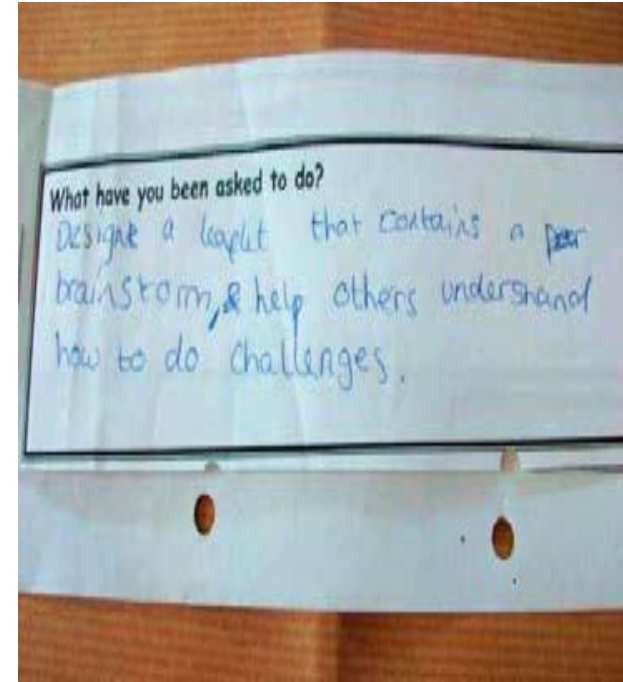 What have you been asked to do?
Designe a leaflit that contains a
brainstorm, & help others understand
how to do challenges.